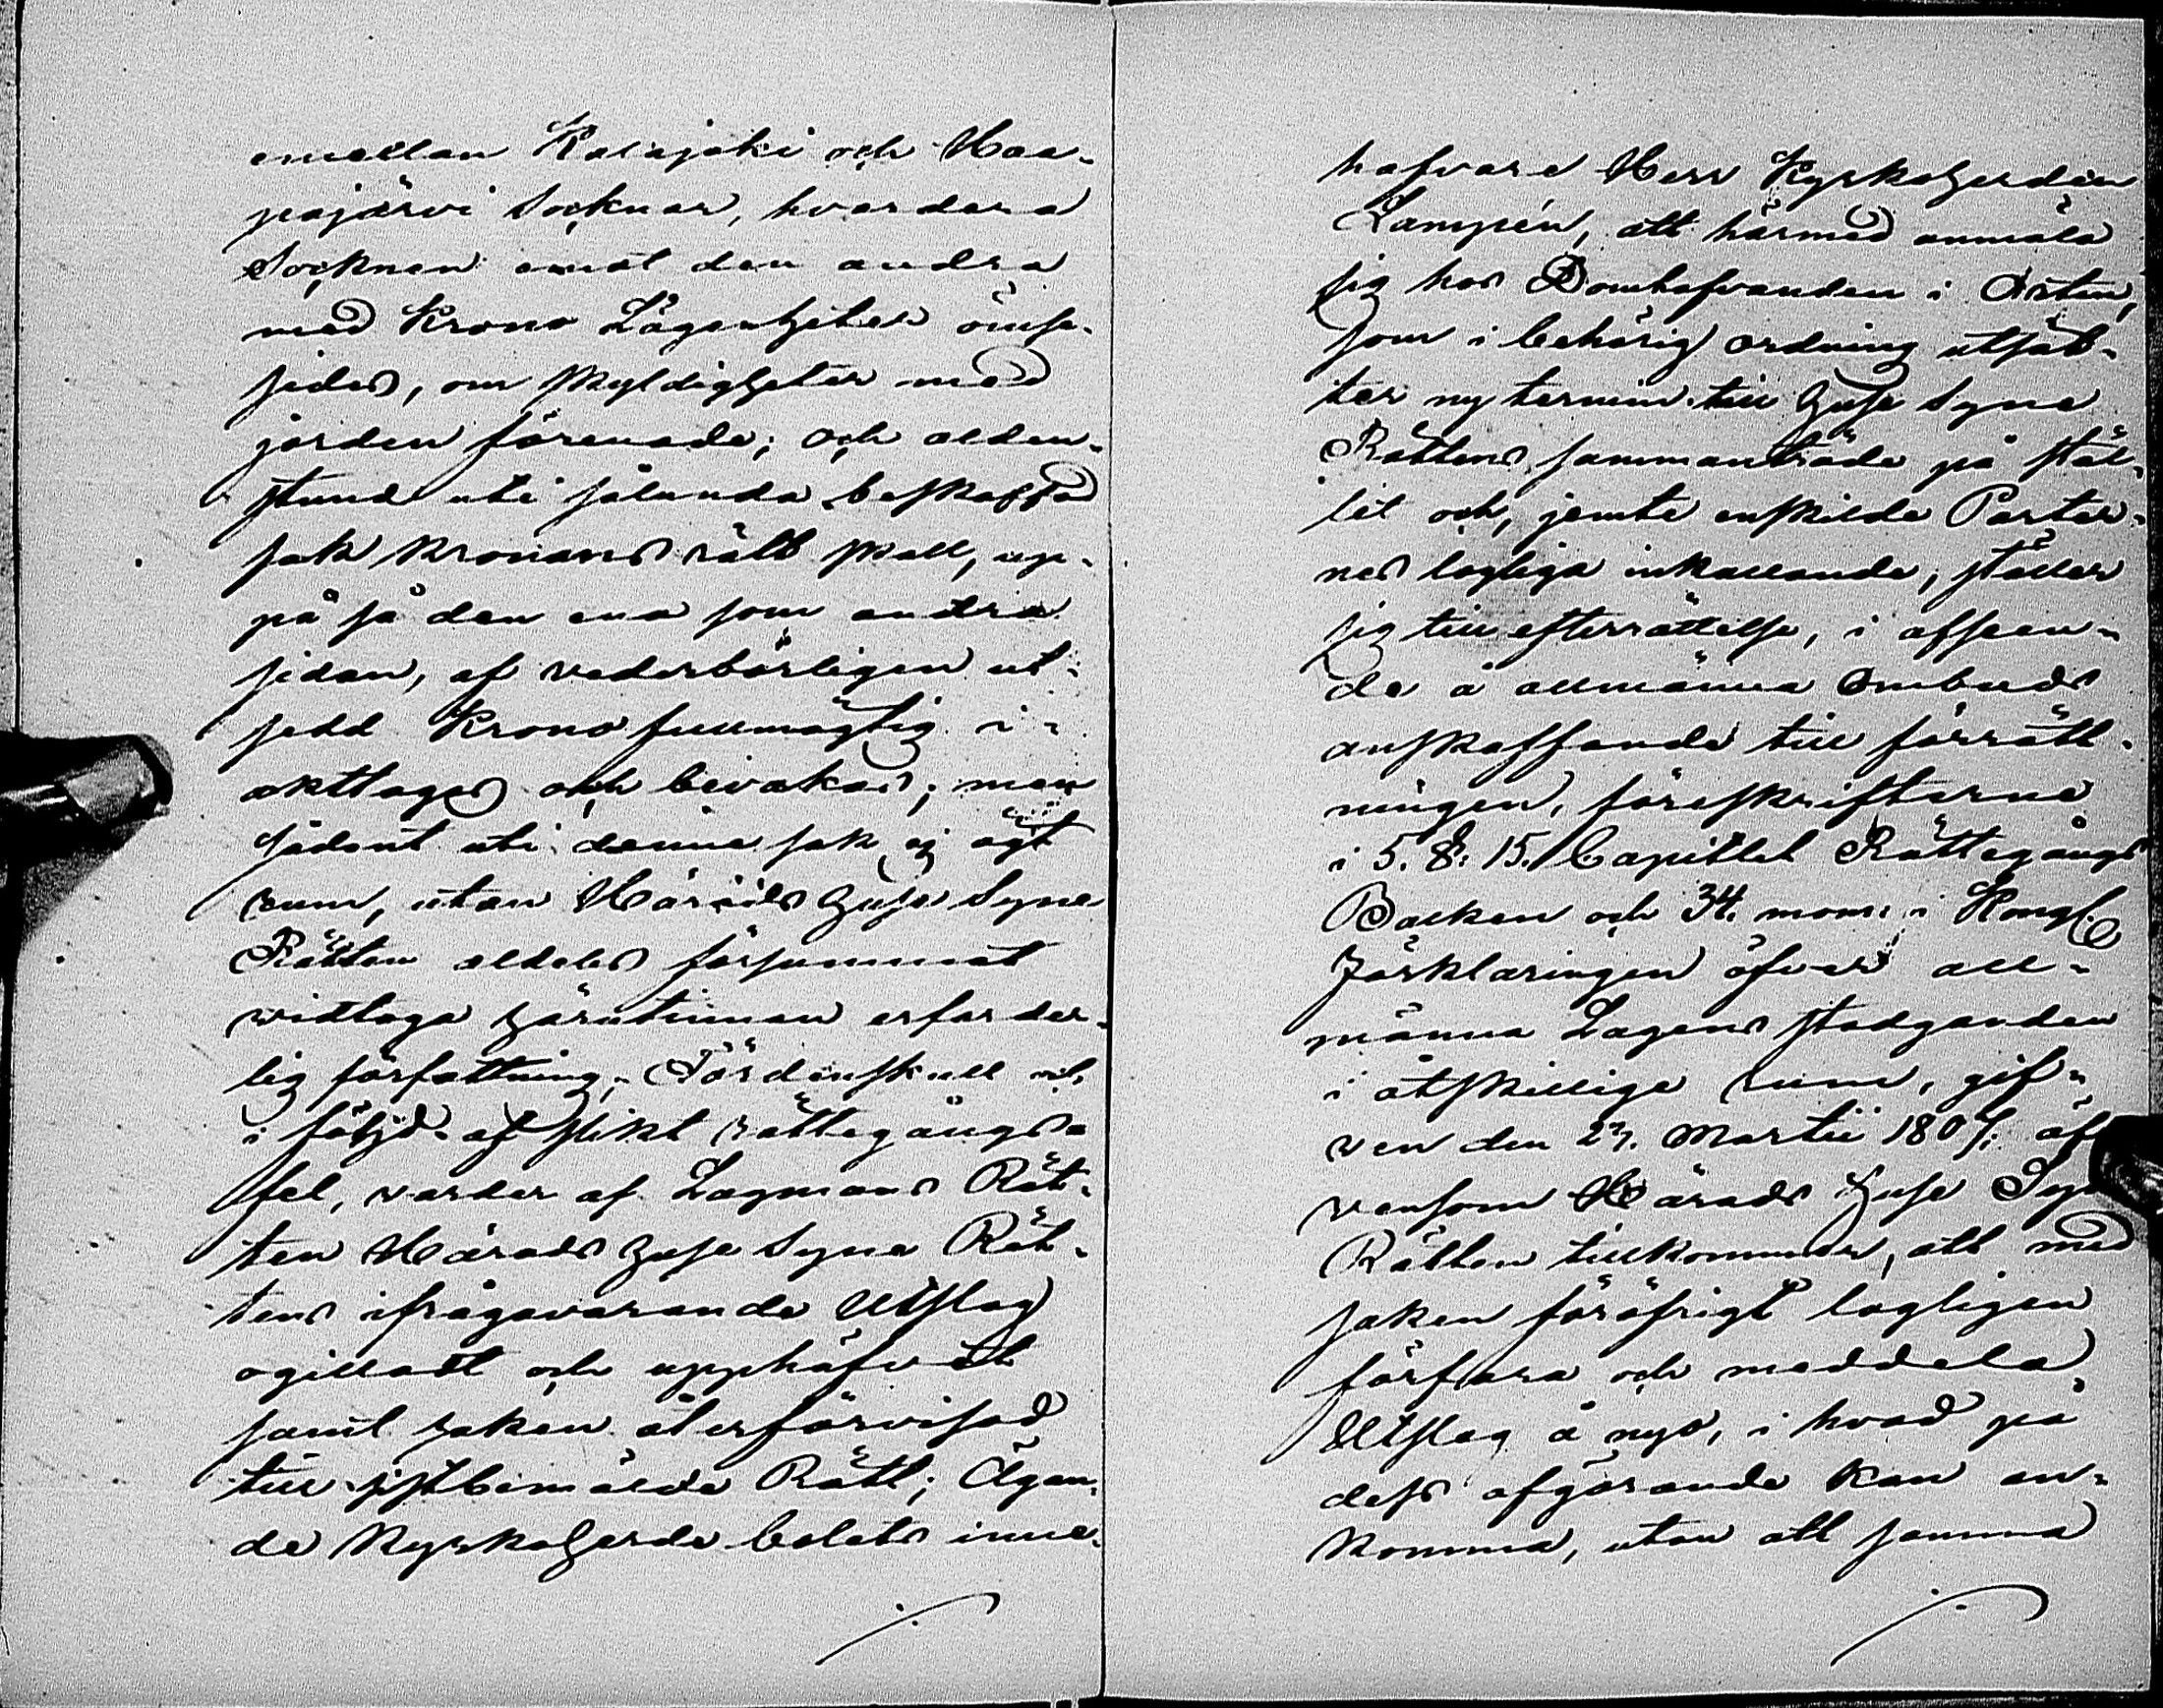 emellan Kalajoki och Haa-
pajärvi Socknar, hvardera
Socknen emot den andra
med Krono Lägenheter ömse-
sides, om skyldigheter med
jorden förenade; och alden-
stund uti sålunda beskaffad
sak Kronans rätt skall, up-
på så den ena som andra
sidan, af vederbörligen ut-
sedd Krono fullmägtig i-
akttagas och bevakas; men
sådant uti denna sak ej ägt
rum, utan Härads Huse Syne
Rätten aldeles försummat
vidtaga härutinnan erforder-
lig författning; Fördenskull och
i följd af slikt rättegångs-
fel, varder af Lagmans Rät-
ten Härads Huse Syne Rät-
tens ifrågavarande Utslag
ogilladt och upphäfvit
samt saken återförvisad
till sistbemälde Rätt; Ägan-
de Kyrkoherde bolets inne-
hafvare Herr Kyrkoherden
Lampén, att härmed anmäla
sig hos Domhafvanden i Orten,
som i behörig ordning utsät-
ter ny termin till Huse Syne
Rättens sammanträde på stäl-
let och, jemte enskilde Parter-
nes lagliga inkallande, ställer
sig till efterrättelse, i afseen-
de å allmänna Ombuds
anskaffande till förrätt-
ningen, föreskrifterne
i 5. §. 15. Capitlet Rättegångs
Balken och 34. mom: i Kongl.
Förklaringen öfver all-
männa Lagens stadganden
i åtskillige rum, gif-
ven den 23. Martii 1807; äf-
vensom Härads Huse Syne
Rätten tillkommer, att med
saken föröfrigt lagligen
förfara och meddela
Utslag å nyo, i hvad på
dess afgörande kan an-
komma, utan att samma